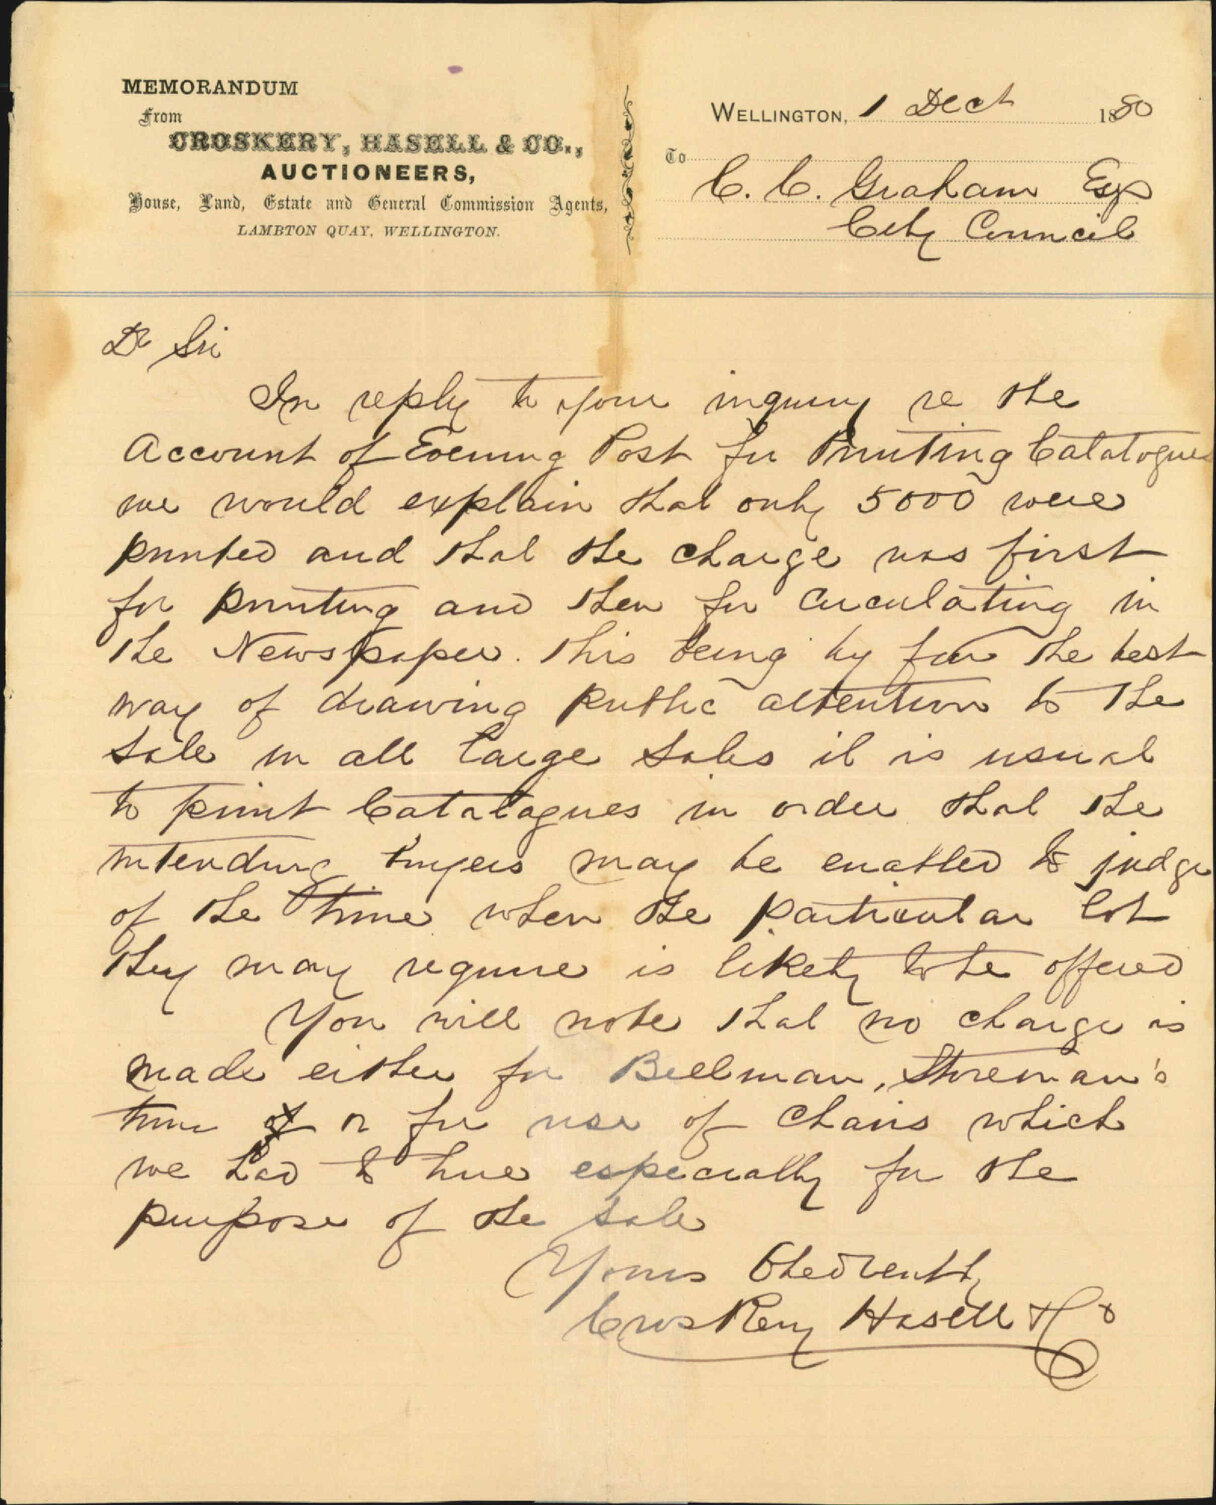 MEMORANDUM
From
CROSKERY, HASELL & CO.,
AUCTIONEERS,
House, Land, Estate and General Commission Agents,
LAMBTON QUAY, WELLINGTON.
WELLINGTON, 1 Dect 1880
To
C. C. Graham Esqr
City Council
Dr Sir
In reply to your inquiry re the
Account of Evening Post for Printing Catalogues
we would explain that only 5000 were
printed and that the charge was first
for printing and then for circulating in
the Newspaper. this being by far the best
way of drawing public attention to the
Sale in all large Sales it is usual
to print Catalogues in order that the
intending buyers may be enabled to judge
of the time when the particular lot
they may require is likely to be offered
You will note that no charge is
made either for Bellman, Storeman's
time or for use of chairs which
we had to hire especially for the
purpose of the Sale
Yours Obediently
Croskery Hasell & Co